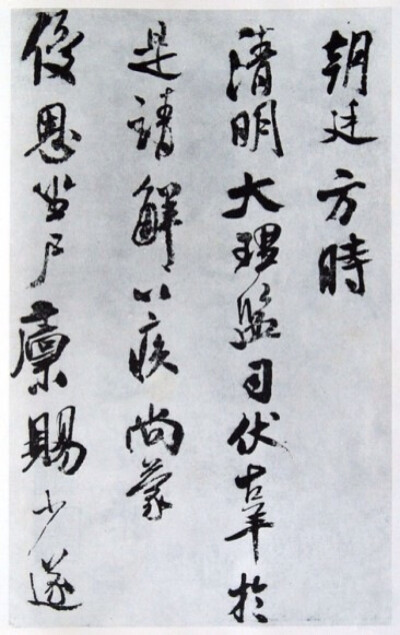 朝廷方時
清明大理監司伏辜於
是請解以疾尚蒙
優恩坐尸廩賜少遂